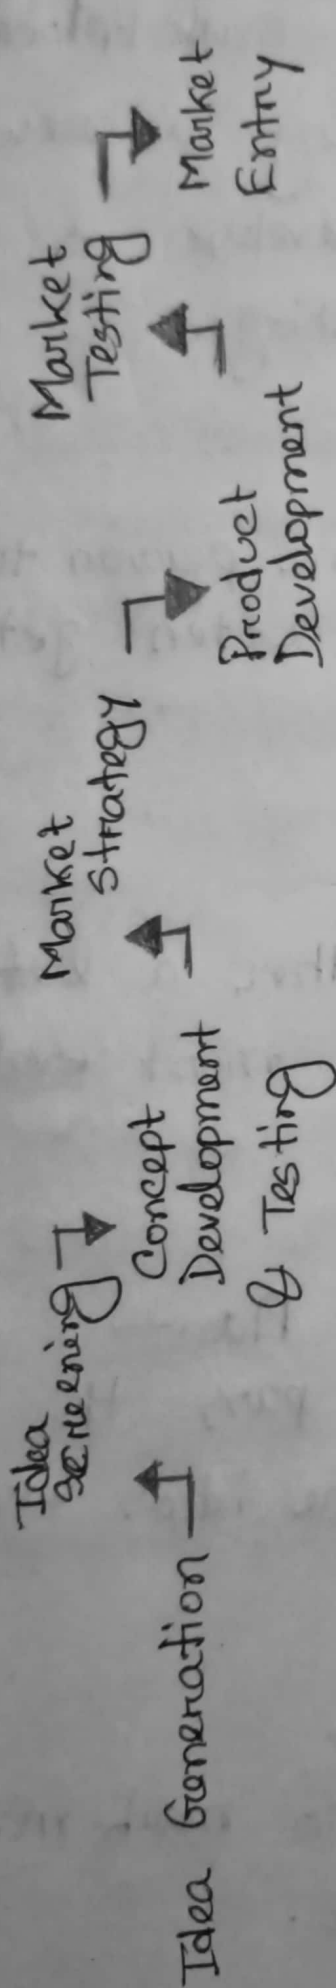 Idea Generation
Idea
Screening
Concept
Development
& Testing
Market
Strategy
Product
Development
Market
Testing
Market
Entry